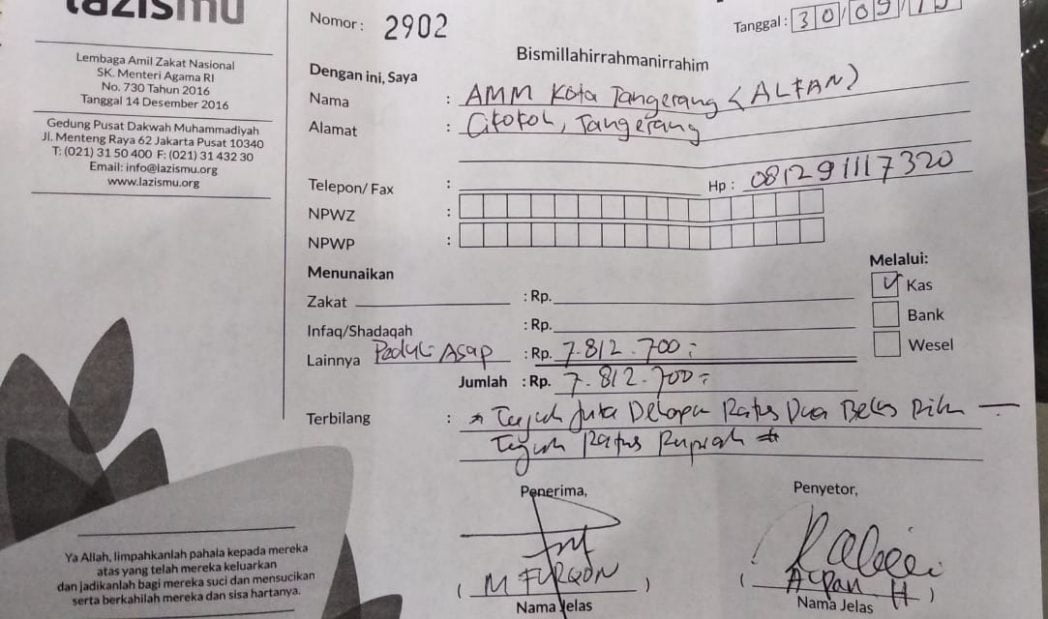 lazismu
Lembaga Amil Zakat Nasional
SK. Menteri Agama RI
No. 730 Tahun 2016
Tanggal 14 Desember 2016
Gedung Pusat Dakwah Muhammadiyah
Jl. Menteng Raya 62 Jakarta Pusat 10340
T: (021) 31 50 400 F: (021) 31 432 30
Email: info@lazismu.org
www.lazismu.org
Nomor : 2902
Tanggal : 30/09/19
Bismillahirrahmanirrahim
Dengan ini, Saya
Nama : AMM Kota Tangerang (ALFAN)
Alamat : Cikokol, Tangerang
Telepon/ Fax : Hp : 081291117320
NPWZ :
NPWP :
Menunaikan
Zakat : Rp.
Infaq/Shadaqah : Rp.
Lainnya Peduli Asap : Rp. 7.812.700 :
Jumlah : Rp. 7.812.700 =
Melalui:
Kas
Bank
Wesel
Terbilang : * Tujuh Juta Delapan Ratus Dua Belas Ribu —
Tujuh Ratus Rupiah #
Penerima,
( M FURQON )
Nama Jelas
Penyetor,
( Alpan H )
Nama Jelas
Ya Allah, limpahkanlah pahala kepada mereka
atas yang telah mereka keluarkan
dan jadikanlah bagi mereka suci dan mensucikan
serta berkahilah mereka dan sisa hartanya.